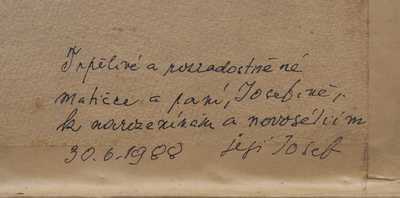 Trpělivé a vždyradostněné
matičce a paní, Josefíně,
k narozeninám a novoséliím
30.6.1988 její Josef